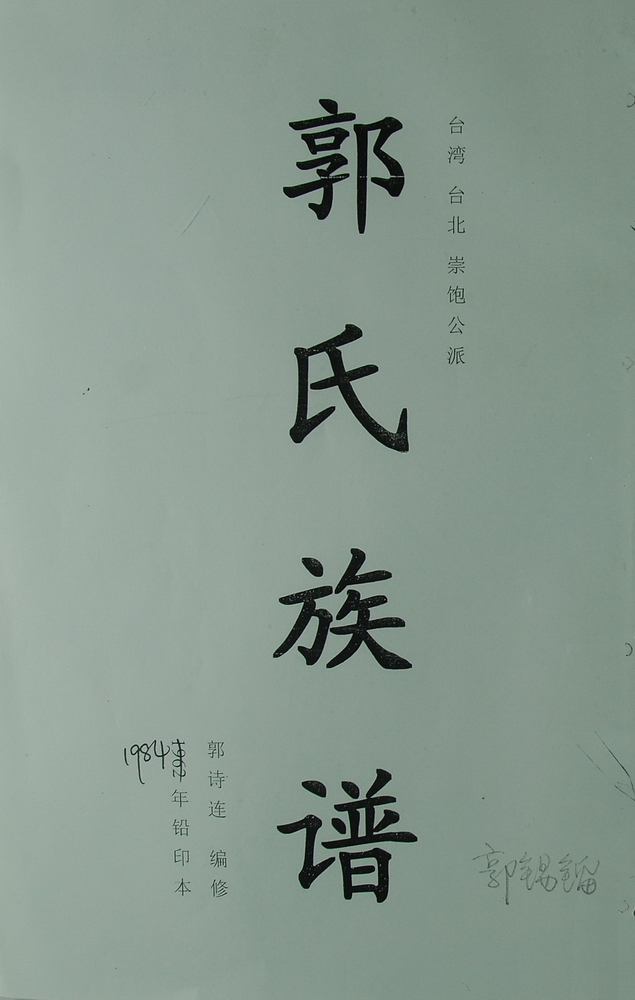 台湾 台北 崇饱公派
郭氏族谱
郭诗连 编修
1984
年铅印本
郭锡镏